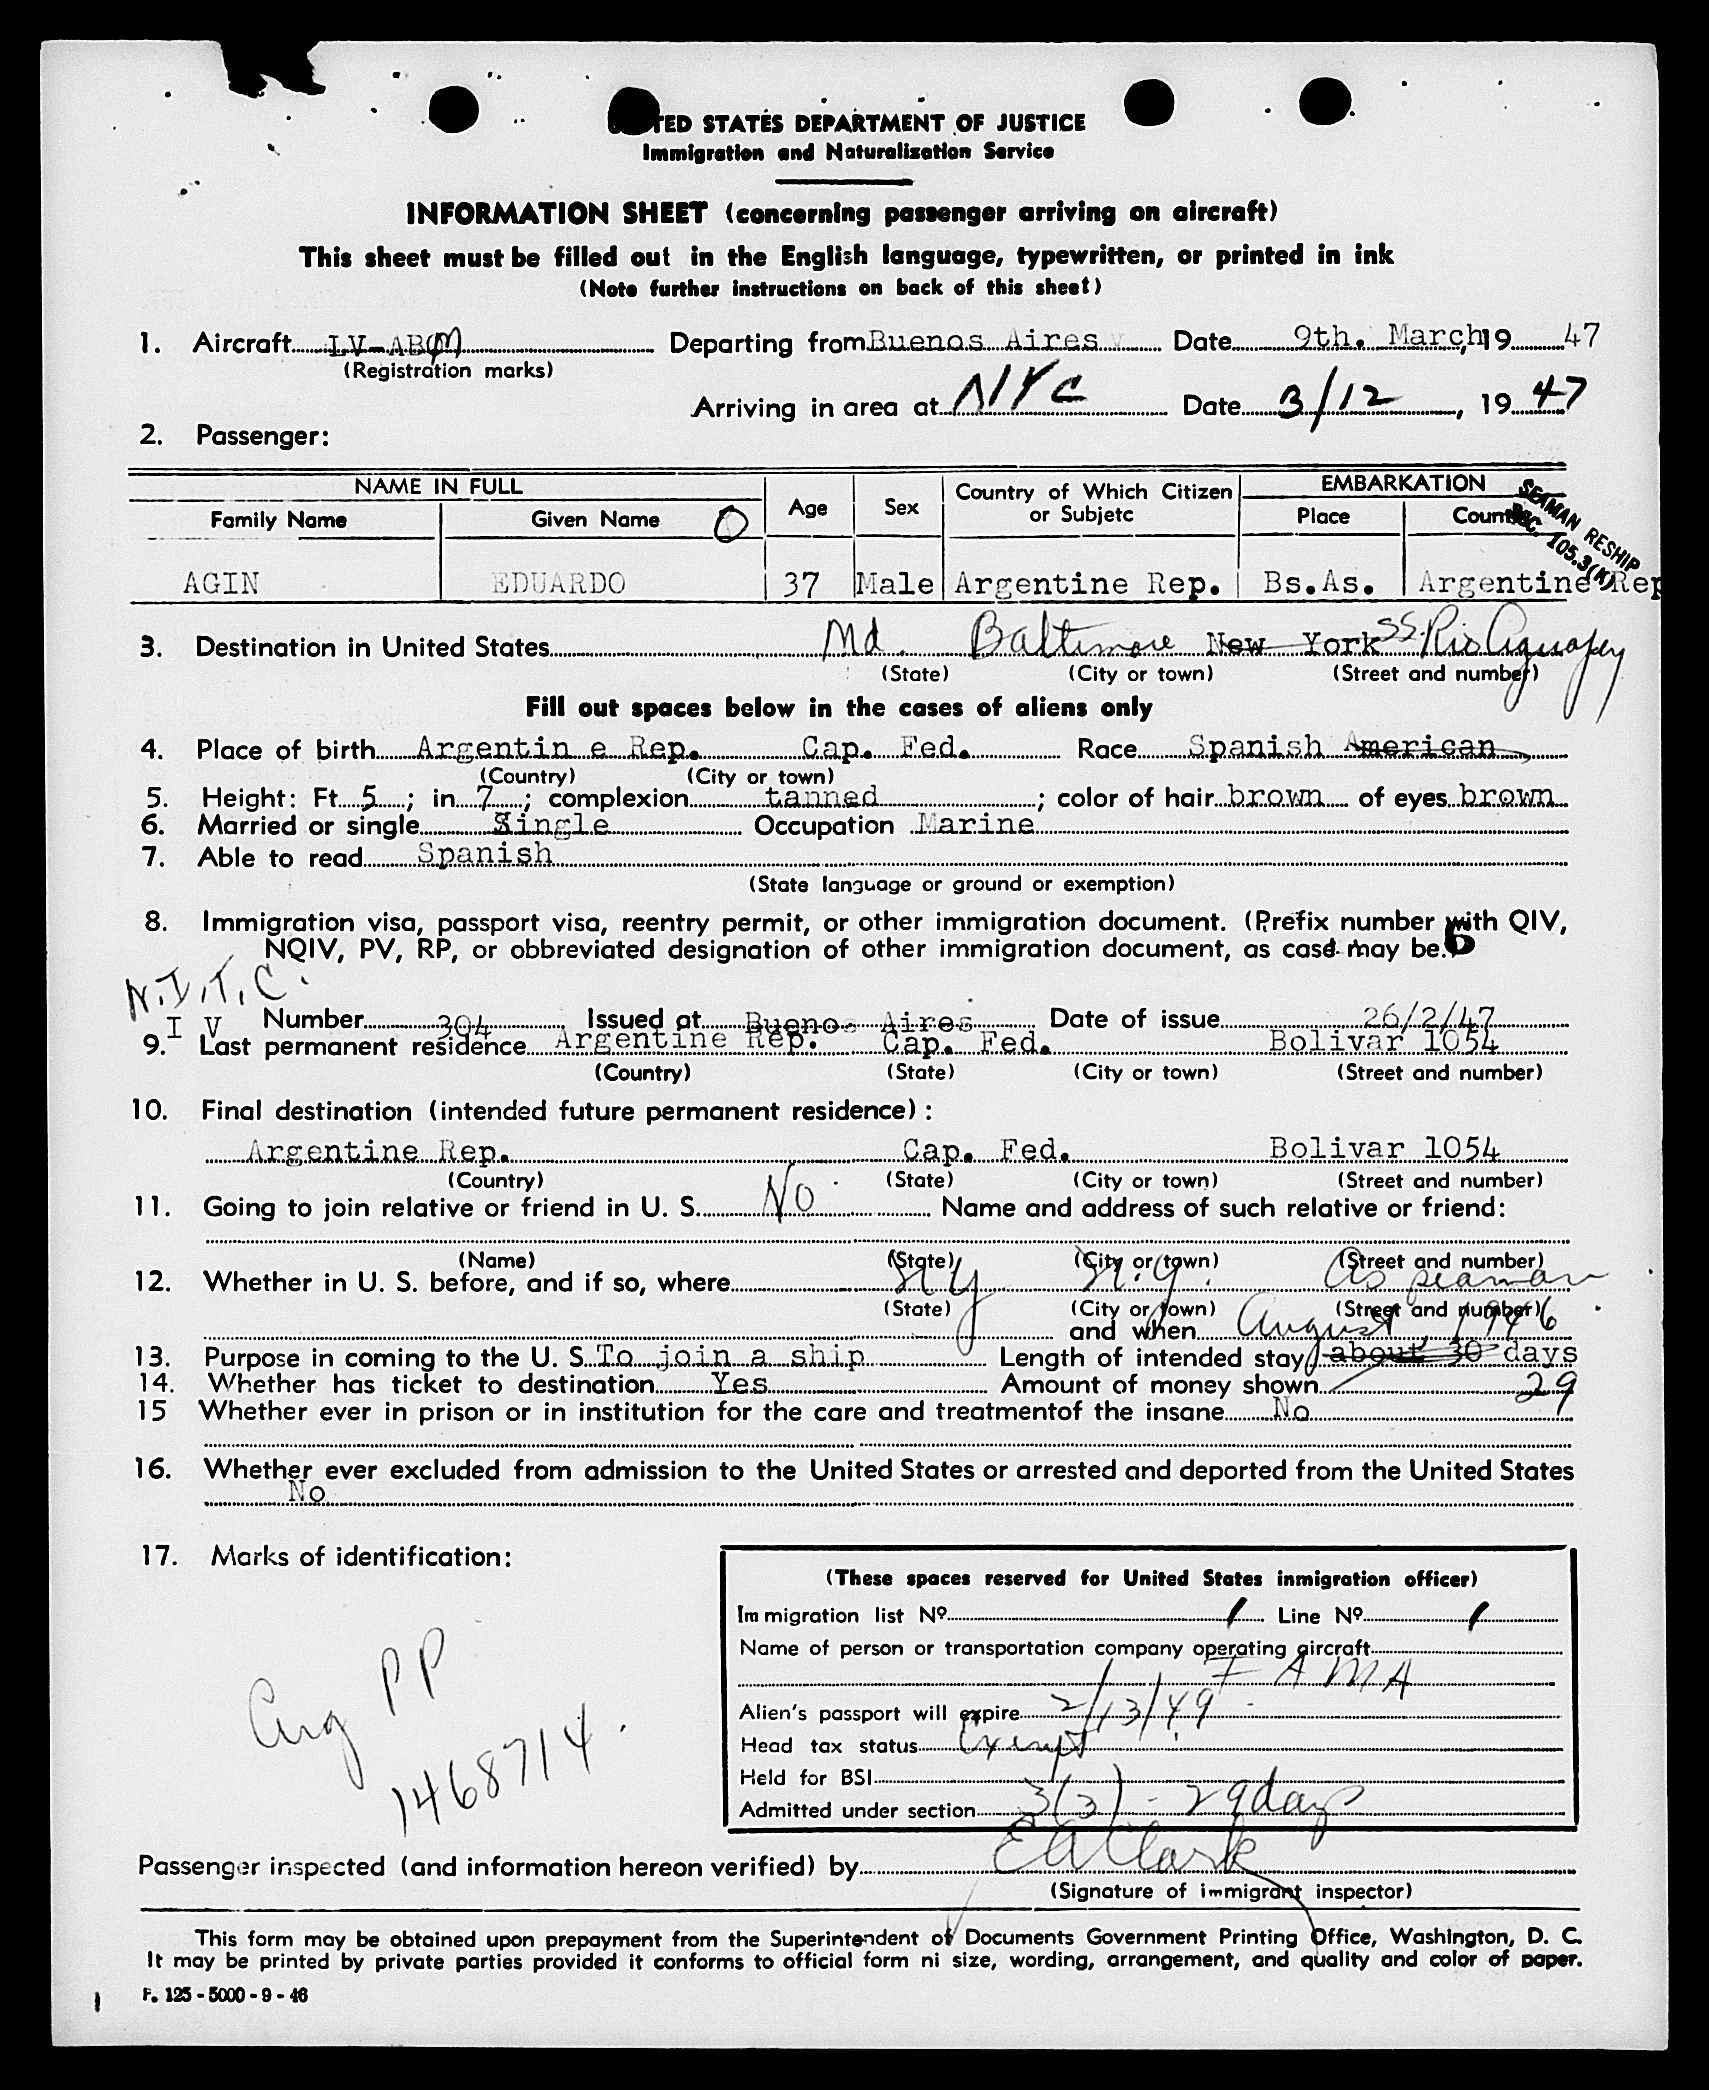 TED STATES DEPARTMENT OF JUSTICE
Immigration and Naturalization Service
INFORMATION SHEET (concerning passenger arriving on aircraft)
This sheet must be filled out in the English language, typewritten, or printed in ink
(Note further instructions on back of this sheet)
1. Aircraft LV-AB Departing from Buenos Aires Date 9th. March, 19 47
(Registration marks)
Arriving in area at NYC Date 3/12, 19 47
2. Passenger:
NAME IN FULL Age Sex Country of Which Citizen or Subjetc EMBARKATION
Family Name Given Name O Place Count
SEAMAN RESHIP
SEC. 105.3(K)
AGIN EDUARDO 37 Male Argentine Rep. Bs.As. Argentine Rep
3. Destination in United States Md. Baltimore New York SS. Rio Aguapey
(State) (City or town) (Street and number)
Fill out spaces below in the cases of aliens only
4. Place of birth Argentin e Rep. Cap. Fed. Race Spanish American
(Country) (City or town)
5. Height: Ft. 5; in. 7; complexion tanned; color of hair brown of eyes brown
6. Married or single Single Occupation Marine
7. Able to read Spanish
(State language or ground or exemption)
8. Immigration visa, passport visa, reentry permit, or other immigration document. (Prefix number with QIV,
NQIV, PV, RP, or obbreviated designation of other immigration document, as case may be.
N.I.T.C.
I V Number 304 Issued at Buenos Aires Date of issue 26/2/47
9. Last permanent residence Argentine Rep. Cap. Fed. Bolivar 1054
(Country) (State) (City or town) (Street and number)
10. Final destination (intended future permanent residence):
Argentine Rep. Cap. Fed. Bolivar 1054
(Country) (State) (City or town) (Street and number)
11. Going to join relative or friend in U. S. No Name and address of such relative or friend:
(Name) (State) (City or town) (Street and number)
12. Whether in U. S. before, and if so, where NY N.Y. As seaman
(State) (City or town) (Street and number)
and when August, 1946
13. Purpose in coming to the U. S. To join a ship Length of intended stay about 30 days
14. Whether has ticket to destination Yes Amount of money shown 29
15 Whether ever in prison or in institution for the care and treatmentof the insane No
16. Whether ever excluded from admission to the United States or arrested and deported from the United States
No
17. Marks of identification:
Arg PP
1468714.
(These spaces reserved for United States inmigration officer)
Immigration list Nº 1 Line Nº 1
Name of person or transportation company operating aircraft
FAMA
Alien's passport will expire 2/13/49
Head tax status Exempt
Held for BSI
Admitted under section 3(2) - 29 days
Passenger inspected (and information hereon verified) by EA Clark
(Signature of immigrant inspector)
This form may be obtained upon prepayment from the Superintendent of Documents Government Printing Office, Washington, D. C.
It may be printed by private parties provided it conforms to official form ni size, wording, arrangement, and quality and color of paper.
F. 125 - 5000 - 9 - 46